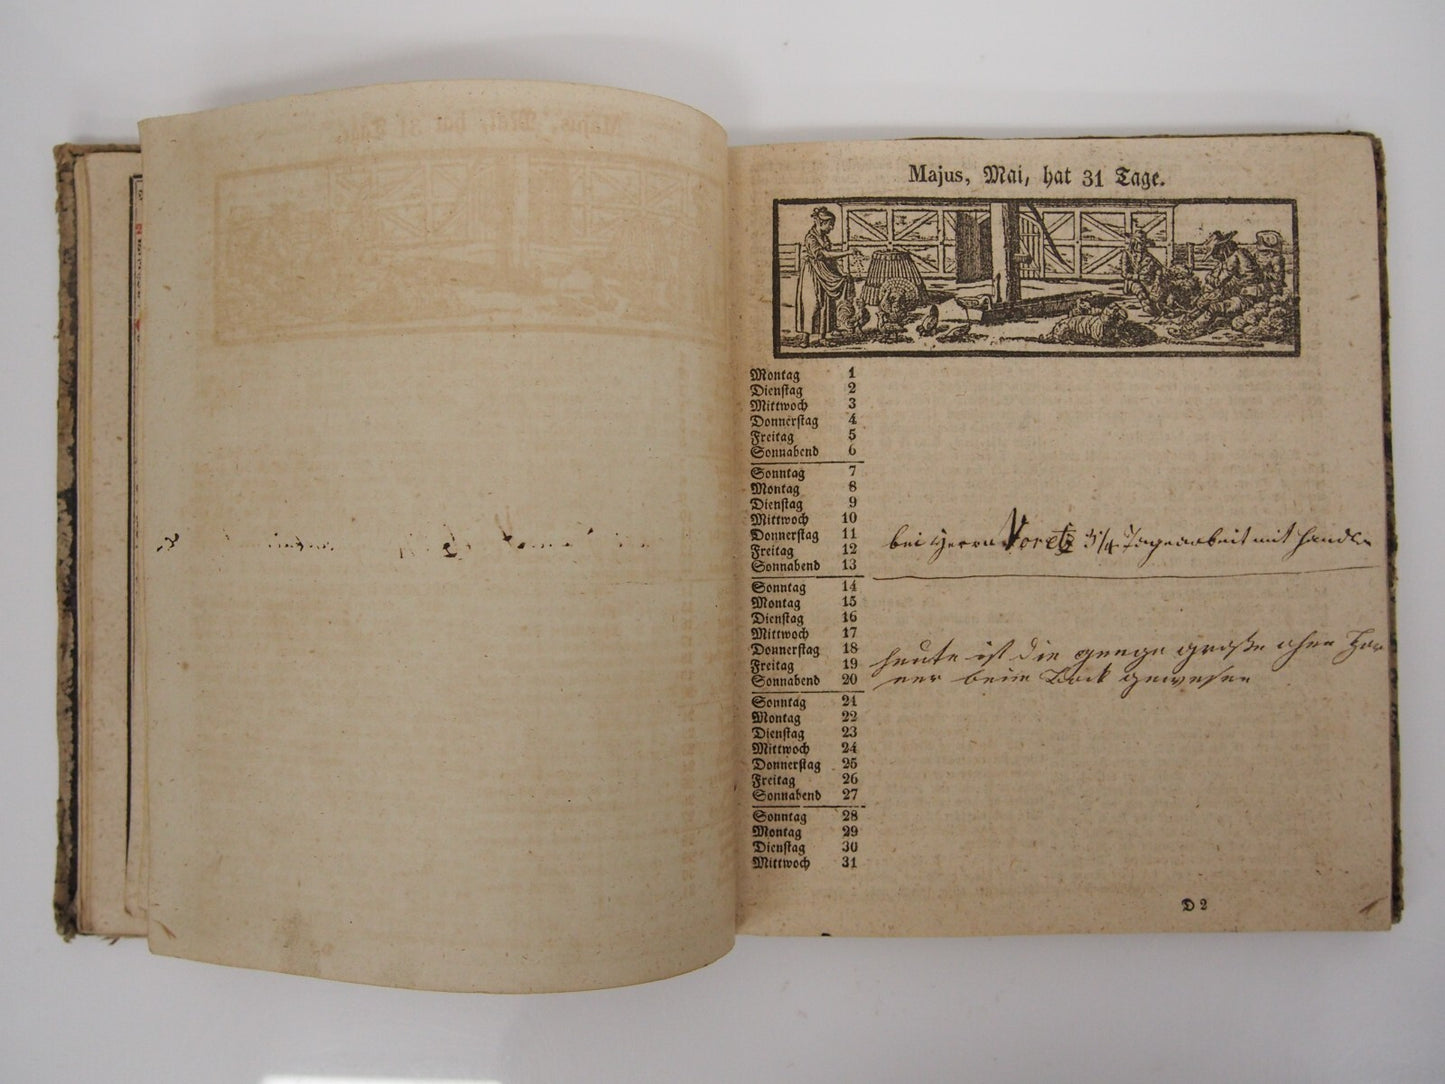 Majus, Mai, hat 31 Tage.
Montag 1
Dienstag 2
Mittwoch 3
Donnerstag 4
Freitag 5
Sonnabend 6
Sonntag 7
Montag 8
Dienstag 9
Mittwoch 10
Donnerstag 11
Freitag 12
Sonnabend 13
bei Herrn Voretz 3/4 Tagearbeit mit
Sonntag 14
Montag 15
Dienstag 16
Mittwoch 17
Donnerstag 18
Freitag 19
Sonnabend 20
heute ist die große ohne
beim Bock gewesen
Sonntag 21
Montag 22
Dienstag 23
Mittwoch 24
Donnerstag 25
Freitag 26
Sonnabend 27
Sonntag 28
Montag 29
Dienstag 30
Mittwoch 31
D 2